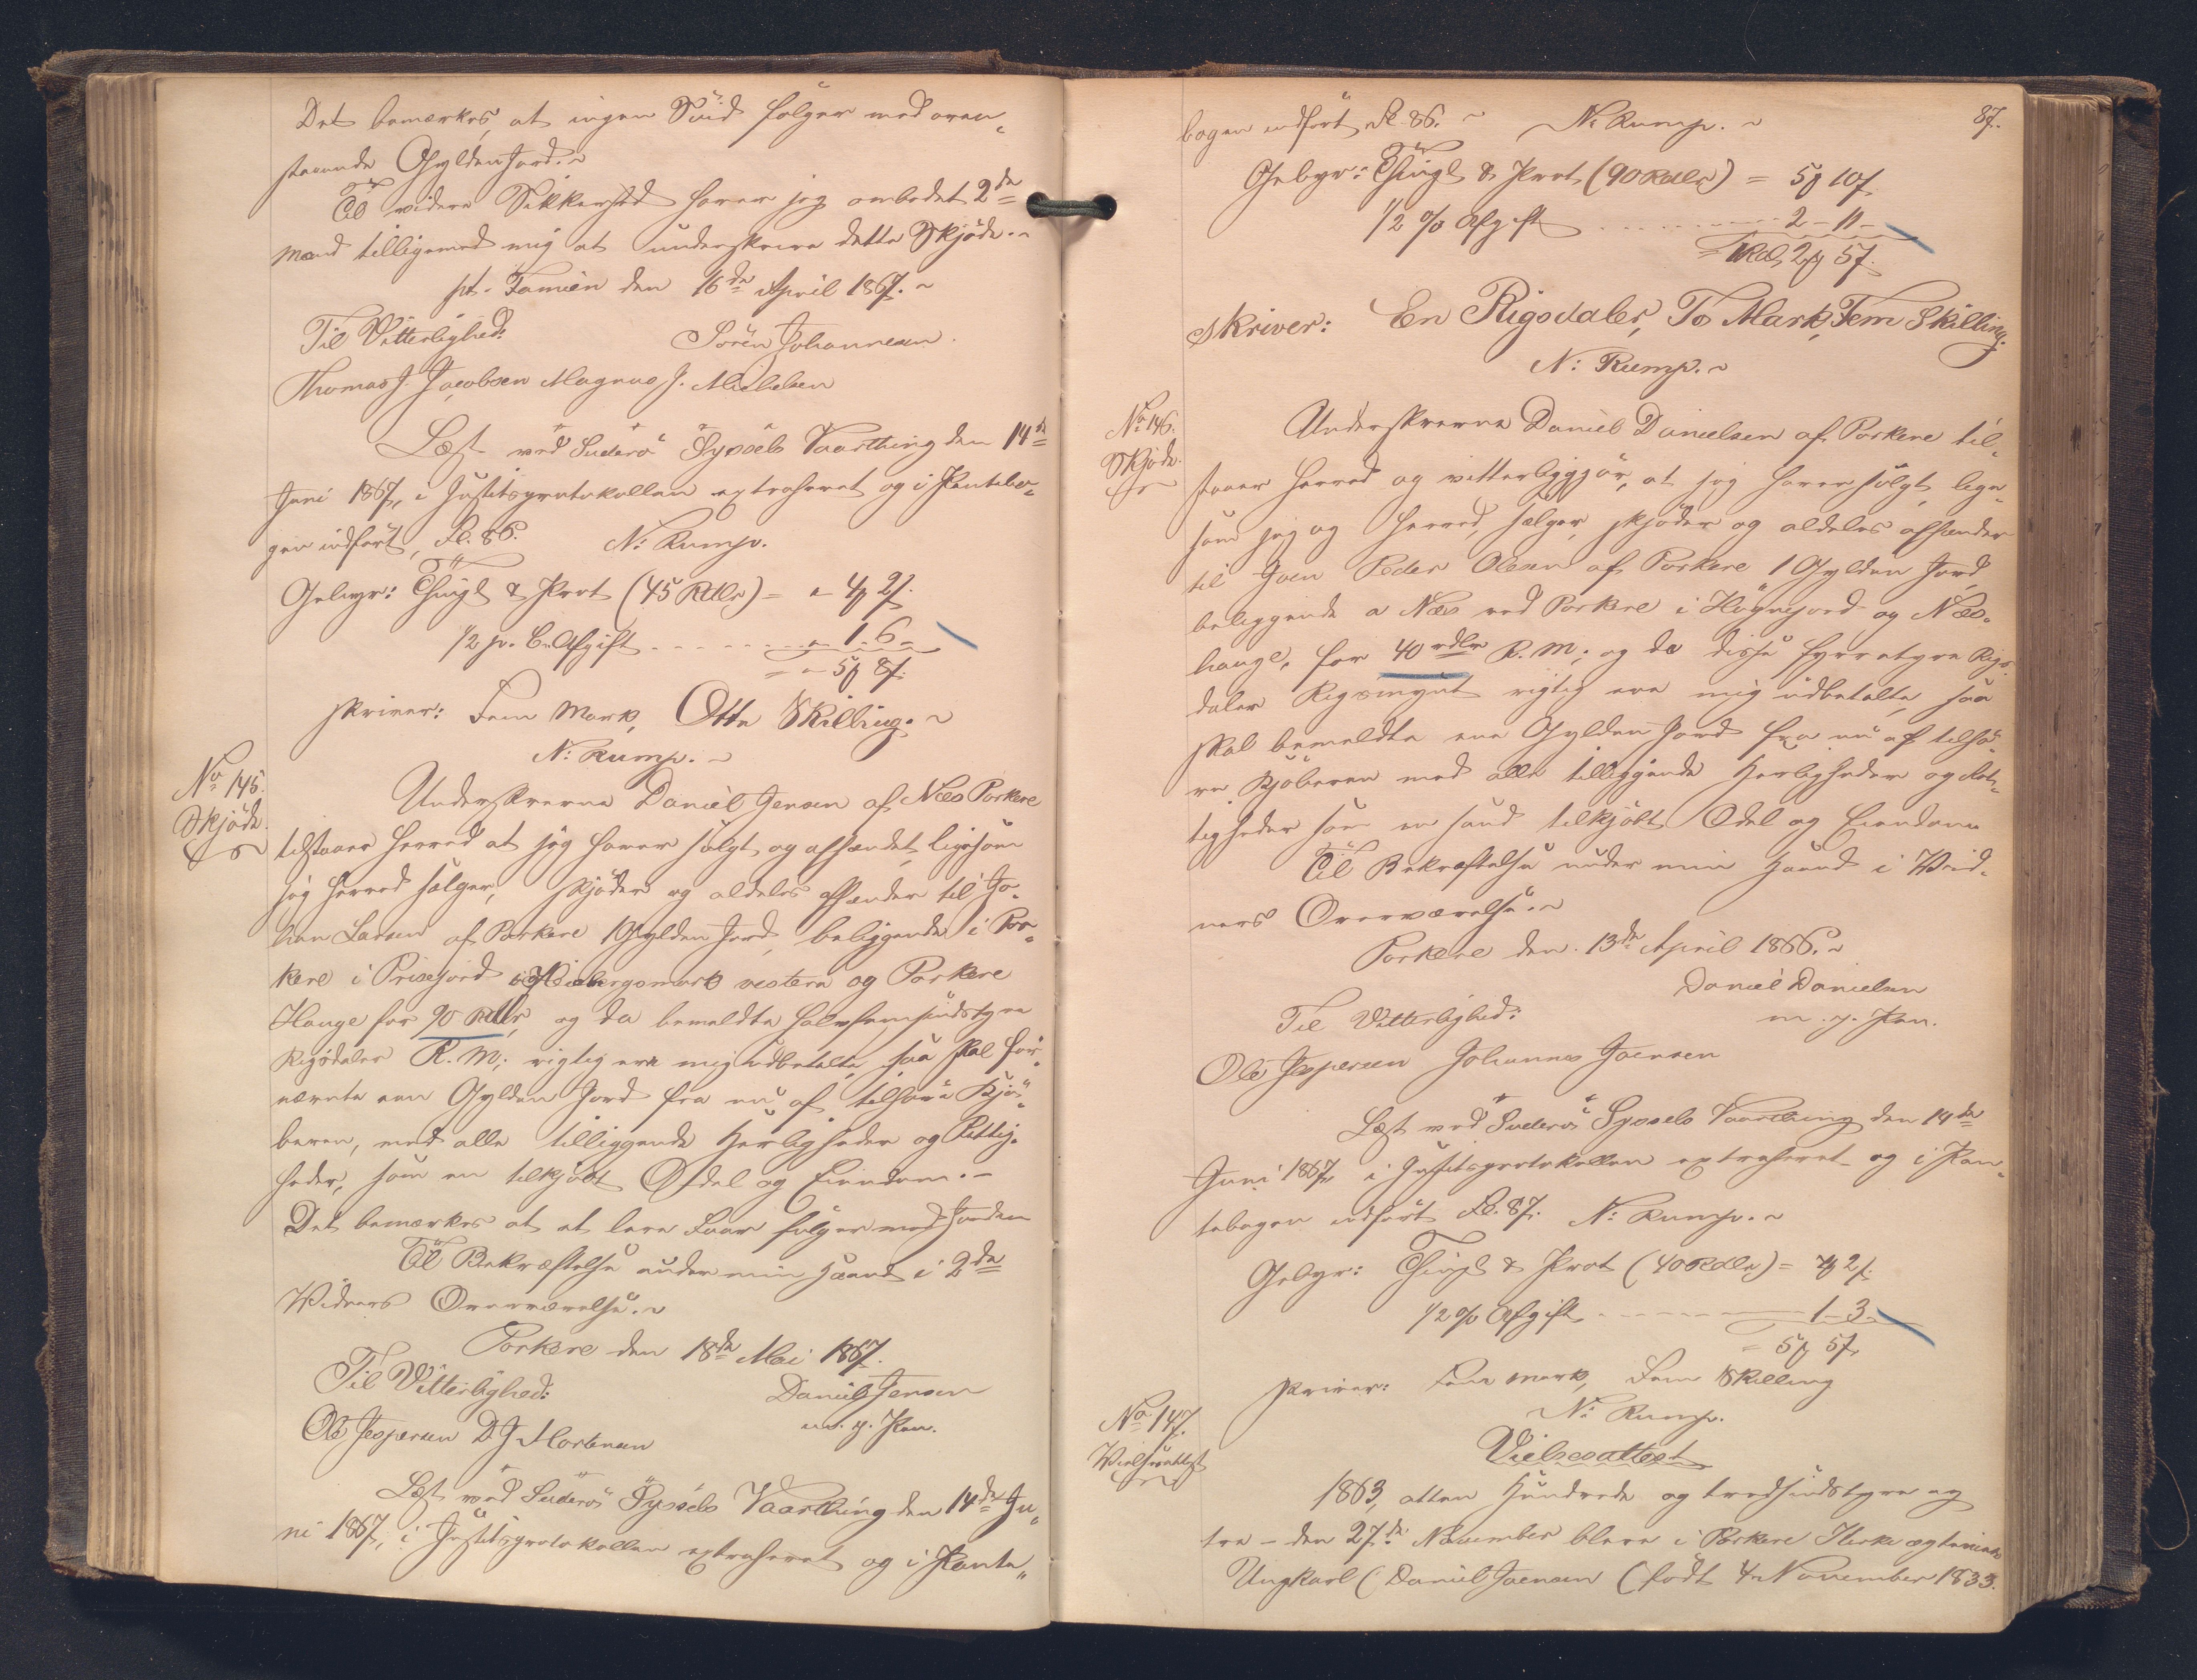 Det bemærkes, at ingen Svid følger med oven-
staaende Gylden Jord.
Til videre Sikkerhed haver jeg ombedet 2de
Mænd tilligemed mig at underskrive dette Skjöde.
pt. Famien den 16de April 1867.
Til Vitterlighed: Sören Johannesen.
Thomas J. Jacobsen Magnus J. Mickelsen
Læst ved Suderö Syssels Vaarthing den 14de
Juni 1867, i Justitsprotokollen extraheret og i Pantebo-
gen indført, Fl. 86. N: Rump.
Gebyr: Thingl & Prot (45 Rdlr) = " 4 2
1/2 p. C. Afgift " 1 - 6 -
= " 5 8
skriver: Fem Mark, Otte Skilling.
N: Rump.
No 145.
Skjöde.
Underskrevne Daniel Jensen af Næs Porkere
tilstaaer herved at jeg haver solgt og afhændet, ligesom
jeg herved sælger, skjöder og aldeles afhænder til Jo-
han Larsen af Porkere 1 Gylden Jord, beliggende i Por-
kere i Prisejord i vestera og Porkere
Hauge for 90 Rdlr, og da bemeldte halvfemsindstyve
Rigsdaler R. M; rigtig ere mig udbetalte, saa skal for-
nævnte een Gylden Jord fra nu af tilhøre Kjö-
beren, med alle tilliggende Herligheder og Rettig-
heder, som en tilkjöbt Odel og Eiendom. -
Det bemærkes at at lave Faar følger med Jorden
Til Bekræftelse under min Haand i 2de
Widners Overværelse.
Porkere den 18de Mai 1867.
Til Vitterlighed: Daniel Jensen
Ole Jespersen D J Mortensen m. p. Pen.
Læst ved Suderö Syssels Vaarthing den 14de Ju-
ni 1867, i Justitsprotokollen extraheret og i Pante-
87.
bogen indført Fl. 86. N: Rump.
Gebyr: Thingl & Prot (90 Rdlr) = 5 10
1/2 % Afgift 2 - 11 -
= 1 Rd. 2 5
skriver: En Rigsdaler, To Mark, Fem Skilling.
N: Rump.
No 146.
Skjöde.
Underskrevne Daniel Danielsen af Porkere til-
staaer herved og vitterliggjör, at jeg haver solgt lige-
som jeg og herved, sælger, skjöder og aldeles afhænder
til Joen Peder Olesen af Porkere 1 Gylden Jord
beliggende a Næs ved Porkere i Högnejord og Næs-
hauge, for 40 rdlr R. M; og da disse fyrretyve Rigs-
daler Rigsmynt rigtig ere mig udbetalte, saa
skal bemeldte een Gylden Jord fra nu af tilhö-
re Kjöberen med alle tilliggende Herligheder og Ret-
tigheder som en sand tilkjöbt Odel og Eiendom
Til Bekræftelse under min Haand i Wid-
ners Overværelse.
Porkere den 13de April 1866.
Daniel Danielsen
Til Vitterlighed: m. p. Pen.
Ole Jespersen Johannes Joensen
Læst ved Suderö Syssels Vaarthing den 14de
Juni 1867, i Justitsprotokollen extraheret og i Pan-
tebogen indført Fl. 87. N: Rump.
Gebyr: Thingl & Prot (40 Rdlr) = 4 2
1/2 % Afgift 1 - 3
= 5 5
skriver: Fem Mark, Fem Skilling
N: Rump.
No 147.
Vielsesattest
Vielsesattest
1863, atten Hundrede og tredsindstyve og
tre - den 27de November bleve i Porkere Kirke ægteviede
Ungkarl (Daniel Joensen (född 4 November 1833.